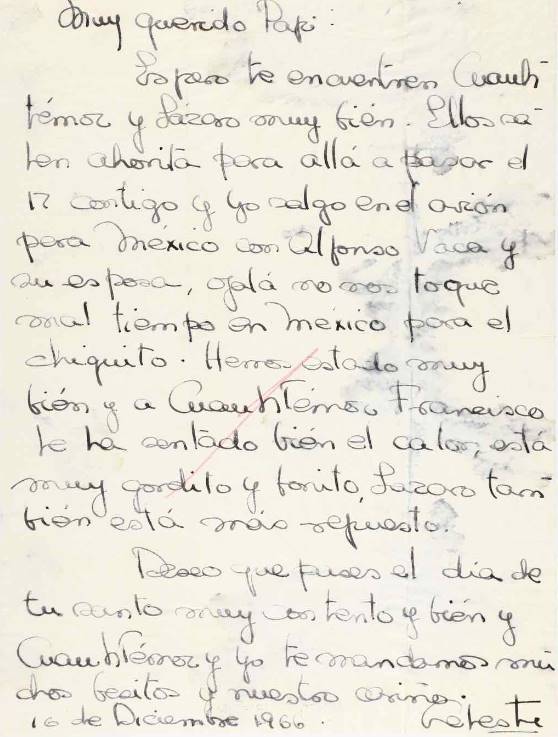 Muy querido Papi:
Espero te encuentren Cuauh
témoc y Lázaro muy bién. Ellos sa
len ahorita para allá a pasar el
17 contigo y yo salgo en el avión
para México con Alfonso Vaca y
su esposa, ojalá no nos toque
mal tiempo en México para el
chiquito. Hemos estado muy
bién y a Cuauhtémoc Francisco
le ha sentado bién el calor, está
muy gordito y bonito, Lázaro tam
bién está más repuesto.
Deseo que pases el dia de
tu santo muy contento y bién y
Cuauhtémoc y yo te mandamos mu
chos besitos y nuestro cariño.
16 de Diciembre 1966. Celeste